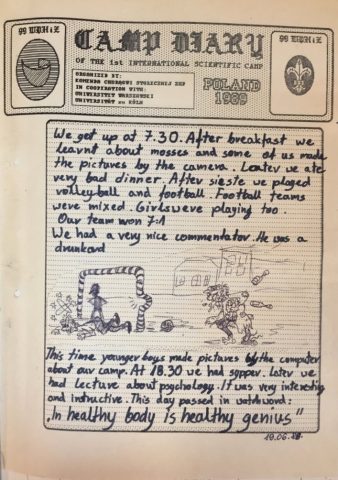 99 WDH i Z
CAMP DIARY
99 WDH i Z
OF THE 1st INTERNATIONAL SCIENTIFIC CAMP
ORGANIZED BY:
KOMENDA CHORĄGWI STOŁECZNEJ ZHP
IN COOPERATION WITH:
UNIWERSYTET WARSZAWSKI
UNIVERSITÄT zu KÖLN
POLAND
1989
We get up at 7.30. After breakfast we
learnt about mosses and some of us made
the pictures by the camera. Loater we ate
very bad dinner. After sieste we played
volleyball and football. Football teams
were mixed. Girls were playing too.
Our team won 7:1
We had a very nice commentator. He was a
drunkard
This time younger boys made pictures by the computer
about our camp. At 18.30 we had supper. Later we
had Lecture about psychology. It was very interesting
and instructive. This day passed in watchword:
„In healthy body is healthy genius"